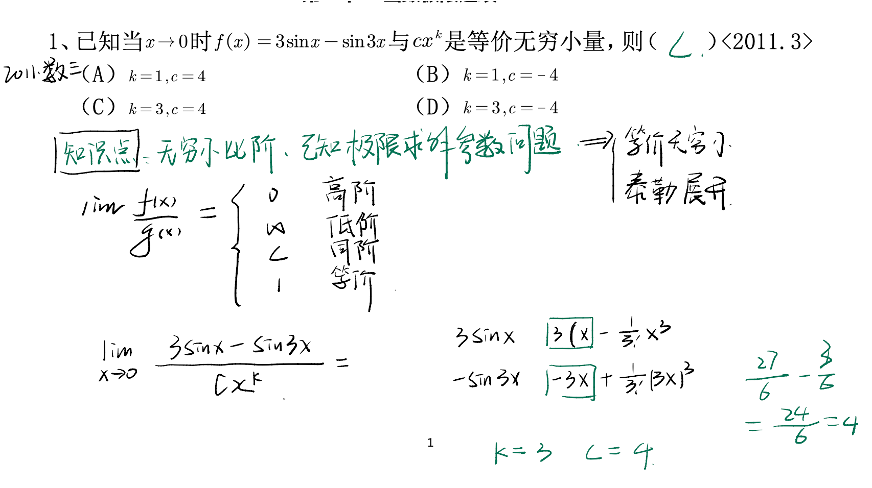 1、已知当x→0时f(x)=3sinx-sin3x与cx^k是等价无穷小量,则( C. )<2011.3>
2011.数三(A) k=1,c=4 (B) k=1,c=-4
(C) k=3,c=4 (D) k=3,c=-4
知识点:无穷小比阶、已知极限求解参数问题 ⇒ { 等价无穷小
泰勒展开
lim f(x)/g(x) = { 0 高阶
∞ 低阶
C 同阶
1 等价
lim x→0 (3sinx-sin3x)/(Cx^k) =
3sinx 3(x - 1/3! x^3
-sin3x -3x + 1/3! (3x)^3
27/6 - 3/6
= 24/6 = 4
k=3 C=4.
1